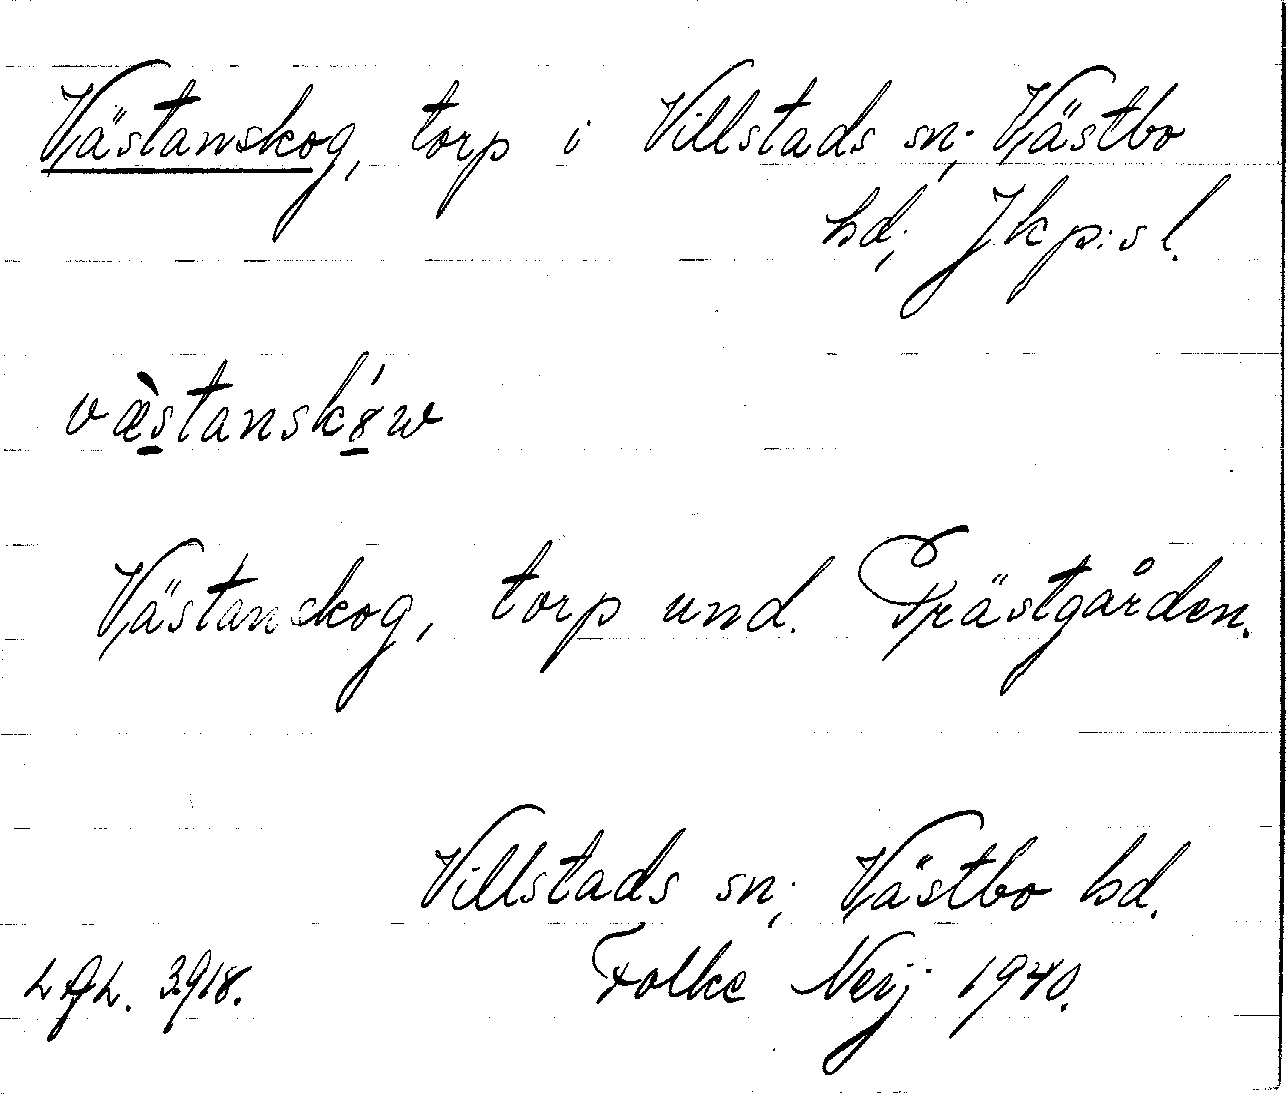 Västanskog, torp i Villstads sn; Västbo
hd; Jkp:s l.
væ̀stanskó̱w
Västanskog, torp und. Prästgården.
Villstads sn; Västbo hd.
Folke Nerj 1940.
3918.